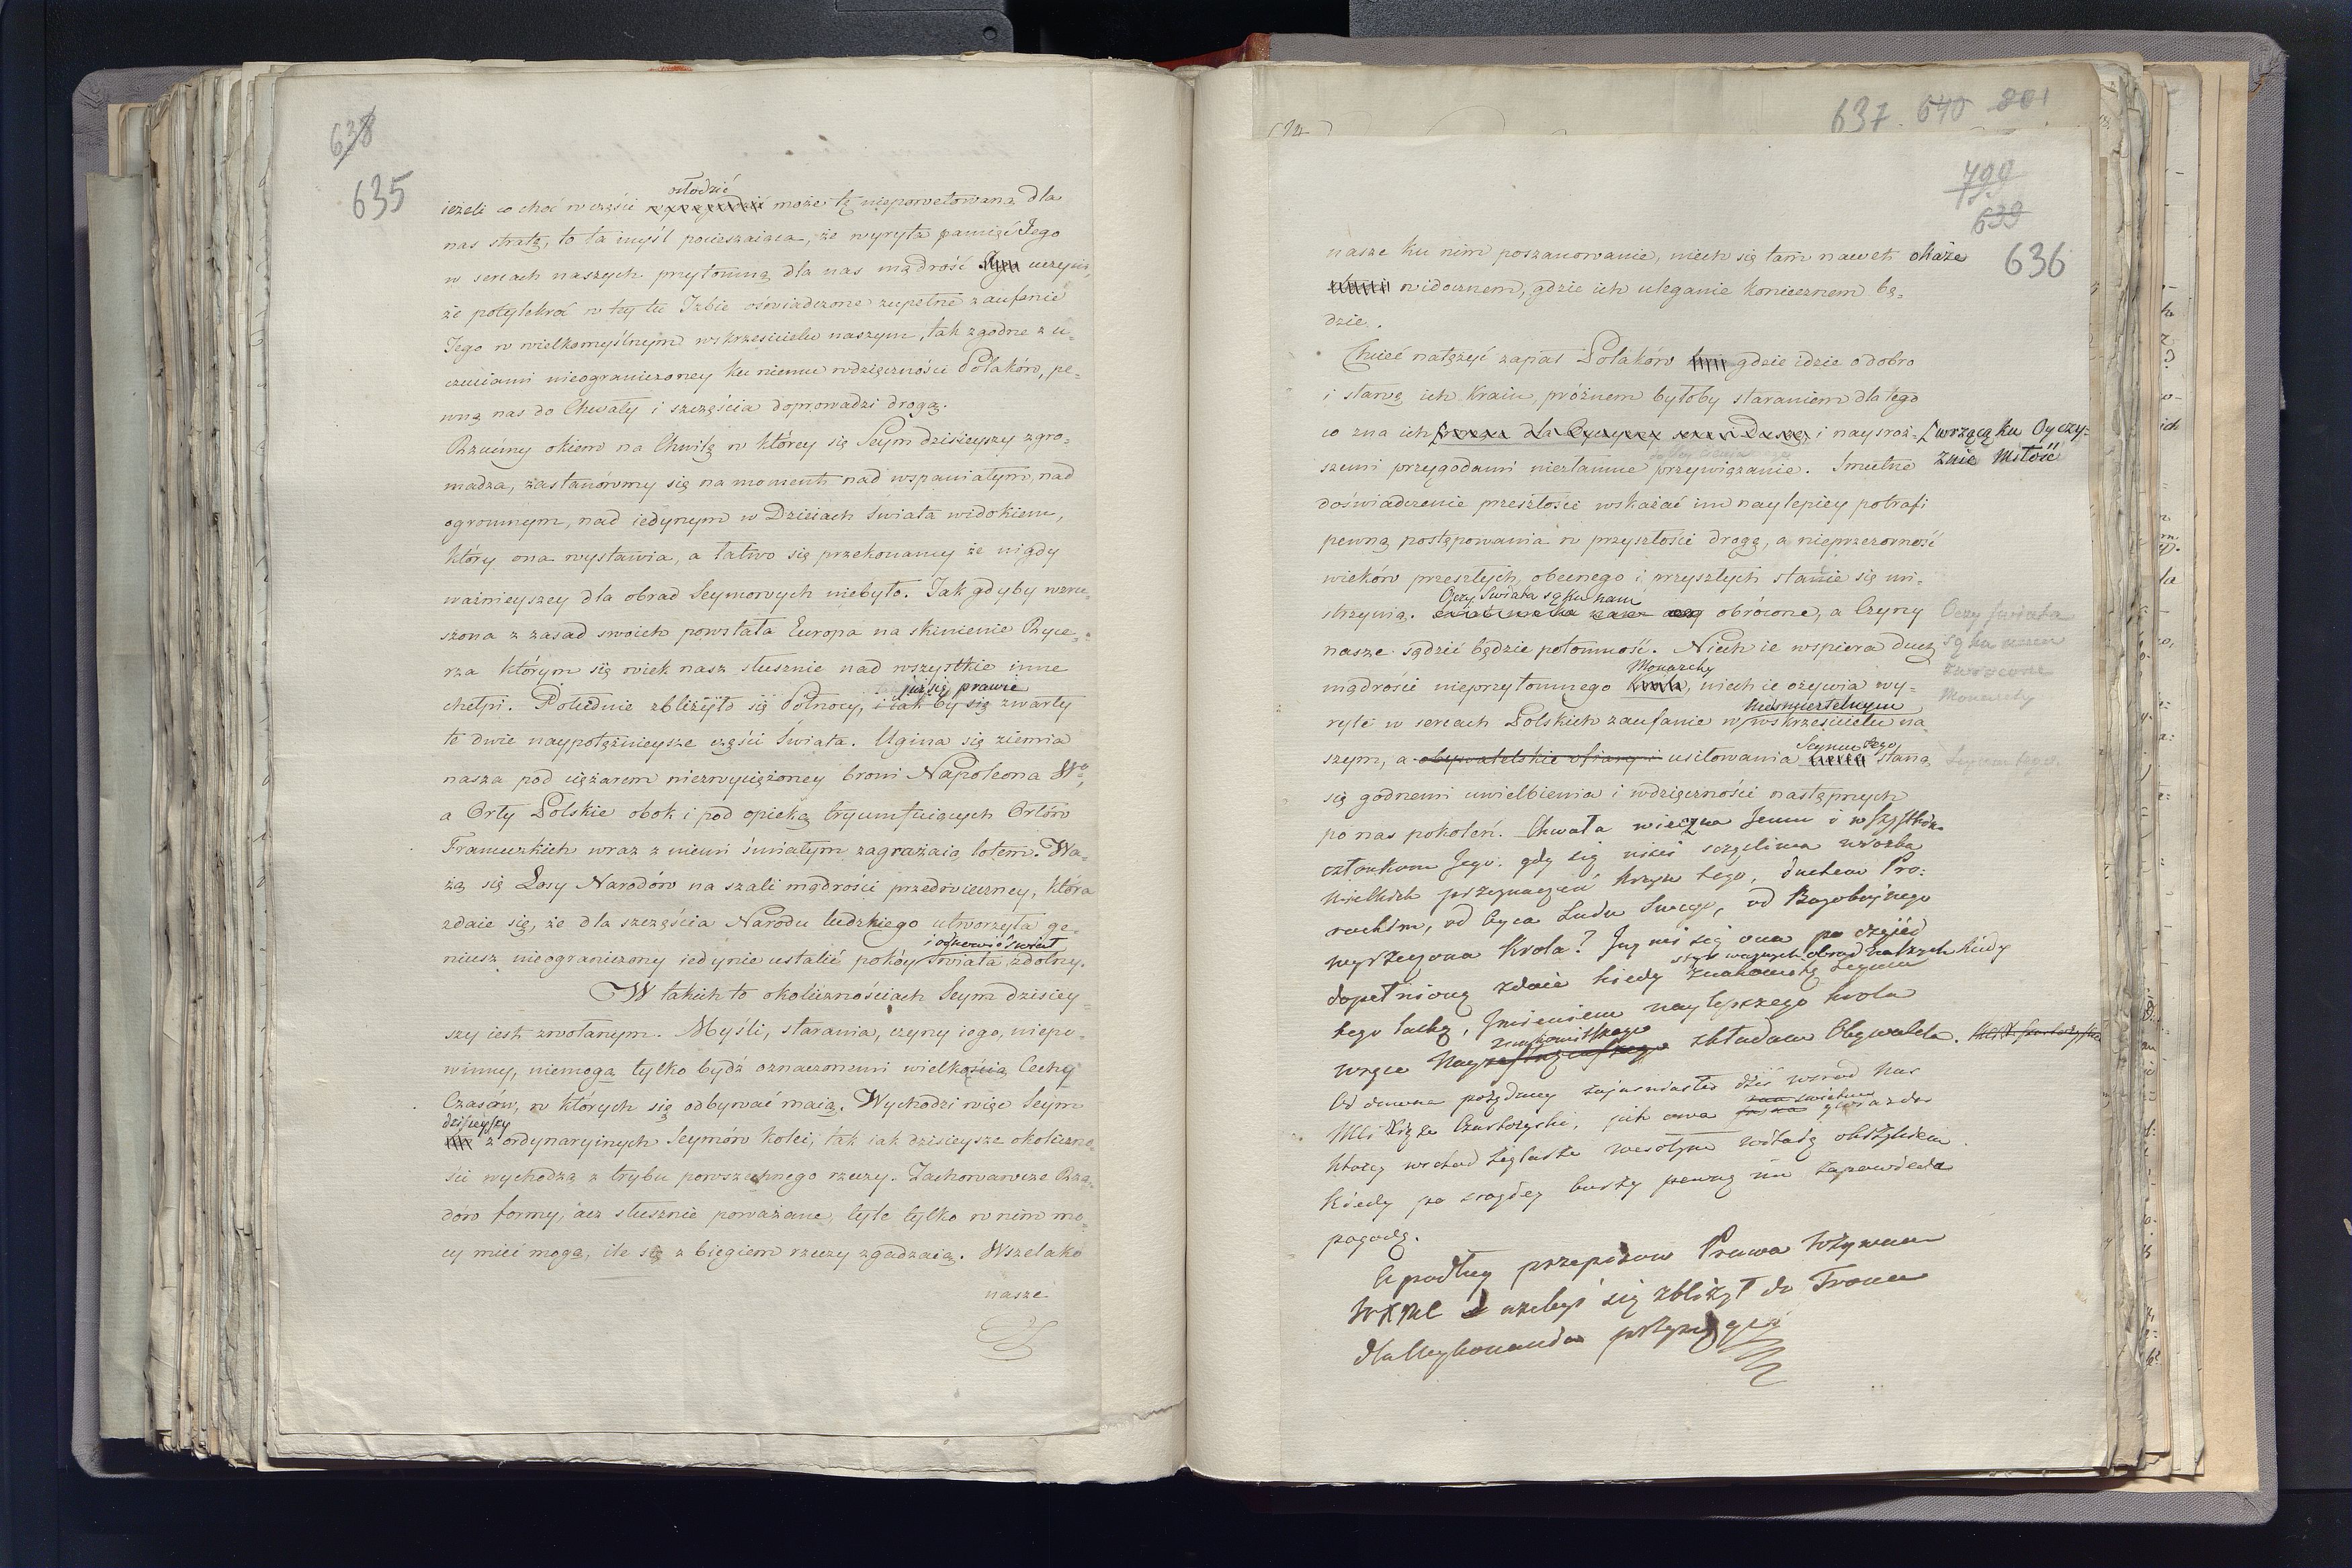 638
635
osłodzić
ieżeli co choć w części może tę niepowetowaną dla
nas stratę, to ta myśl pocieszaiąca, że wyryta pamięć Jego
w sercach naszych przytomną dla nas mądrość uczyni,
że potylekroć w tey tu Izbie oświadczone zupełne zaufanie
Jego w wielkomyślnym wskrzesicielu naszym, tak zgodne z u-
czuciami nieograniczoney ku niemu wdzięczności Polaków, pe-
wną nas do Chwały i szczęścia doprowadzi drogą.
Rzućmy okiem na Chwilę w którey się Seym dzisieyszy zgro-
madza, zastanówmy się na moment nad wspaniałym, nad
ogromnym, nad iedynym w Dzieiach świata widokiem,
który ona wystawia, a łatwo się przekonamy że nigdy
ważnieyszey dla obrad Seymowych niebyło. Jak gdyby wzru-
szona z zasad swoich powstała Europa na skinienie Ryce-
rza którym się wiek nasz słusznie nad wszystkie inne
już się prawie
chełpi. Południe zbliżyło się Północy, i iak by się zwarły
te dwie naypotężnieysze części świata. Ugina się ziemia
nasza pod ciężarem niezwyciężoney broni Napoleona Wo,
a Orły Polskie obok i pod opieką tryumfuiących Orłów
Francuzkich wraz z niemi śmiałym zagrażaią lotem. Wa-
żą się Losy Narodów na szali mądrości przedwieczney, która
zdaie się, że dla szczęścia Narodu ludzkiego utworzyła ge-
i odnowić świat
niusz nieograniczony iedynie ustalić pokóy świata zdolny.
W takich to okolicznościach Seym dzisiey-
szy iest zwołanym. Myśli, starania, czyny iego, niepo-
winny, niemogą tylko bydź oznaczonemi wielkością Cechy
Czasów, w których się odbywać maią. Wychodzi więc Seym
dzisieyszy
z ordynaryinych Seymów kolei, tak iak dzisieysze okoliczno-
ści wychodzą z trybu powszechnego rzeczy. Zachowawcze Rzą-
dów formy, acz słusznie poważane, tyle tylko w nim mo-
cy mieć mogą, ile się z biegiem rzeczy zgadzaią. Wszelako
nasze
637 640 801
790
639
636
nasze ku nim poszanowanie, niech się tam nawet okaże
widocznem, gdzie ich uleganie koniecznem bę-
dzie.
Chcieć natężyć zapał Polaków gdzie idzie o dobro
i sławę ich Kraiu, próżnem byłoby staraniem dla tego
co zna ich i naysroż- wrzącą ku Oyczy-
szemi przygodami niezłamne przywiązanie. Smutne znie Miłość
doświadczenie przeszłości wskazać im naylepiey potrafi
pewną postępowania w przyszłości drogę, a nieprzezorność
wieków przeszłych, obecnego i przyszłych stanie się mi-
Oczy Swiata są ku nam
strzynią. obrócone, a Czyny Oczy świata
nasze sądzić będzie potomność. Niech ie wspiera duch są ku nam
Monarchy zwrócone
mądrości nieprzytomnego Króla, niech ie ożywia wy- Monarchy
Nieśmiertelnym
ryte w sercach Polskich zaufanie w wskrzesicielu na-
Seymu tego
szym, a obywatelskie usiłowania staną Seymu tego
się godnemi uwielbienia i wdzięczności następnych
po nas pokoleń. Chwała wieczna Jemu i wszystkim
członkom Jego, gdy się ziści szczęśliwa wróżba
wielkich przeznaczeń Kraju tego, duchem Pro-
rockim, od Oyca Ludu Swego, od Bogobojnego
wyrzeczona Krola? Juz mi się ona po części
ster waznych obrad naszych kiedy
dopełnioną zdaie kiedy znakomitą Seymu
tego laskę, Imieniem naylepszego krola
znakomitszego
w ręce Nayzasłużeńszego składam Obywatela.
Od dawna pożądany zajaśniałeś dziś wsrod nas
świetna
Mci Xiąże Czartoryski, jak owa gwiazda
ktorey wschod żeglarze wesołym witaią okrzykiem
kiedy po srogiey burzy pewną im zapowiada
pogodę.
A podług przepisow Prawa wzywam
WXMć ażebyś się zbliżył do Tronu
dla wykonania przysięgi